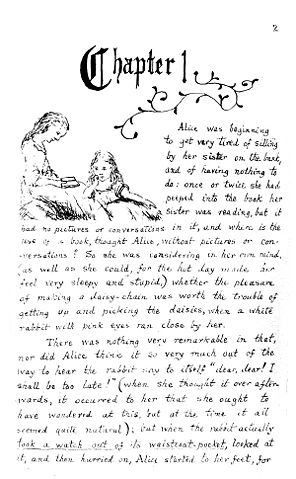 2
Chapter 1
Alice was beginning
to get very tired of sitting
by her sister on the bank,
and of having nothing to
do: once or twice she had
peeped into the book her
sister was reading, but it
had no pictures or conversations in it, and where is the
use of a book, thought Alice, without pictures or con-
versations? So she was considering in her own mind,
(as well as she could, for the hot day made her
feel very sleepy and stupid,) whether the pleasure
of making a daisy-chain was worth the trouble of
getting up and picking the daisies, when a white
rabbit with pink eyes ran close by her.
There was nothing very remarkable in that,
nor did Alice think it so very much out of the
way to hear the rabbit say to itself "dear, dear! I
shall be too late!" (when she thought it over after-
wards, it occurred to her that she ought to
have wondered at this, but at the time it all
seemed quite natural); but when the rabbit actually
took a watch out of its waistcoat-pocket, looked at
it, and then hurried on, Alice started to her feet, for